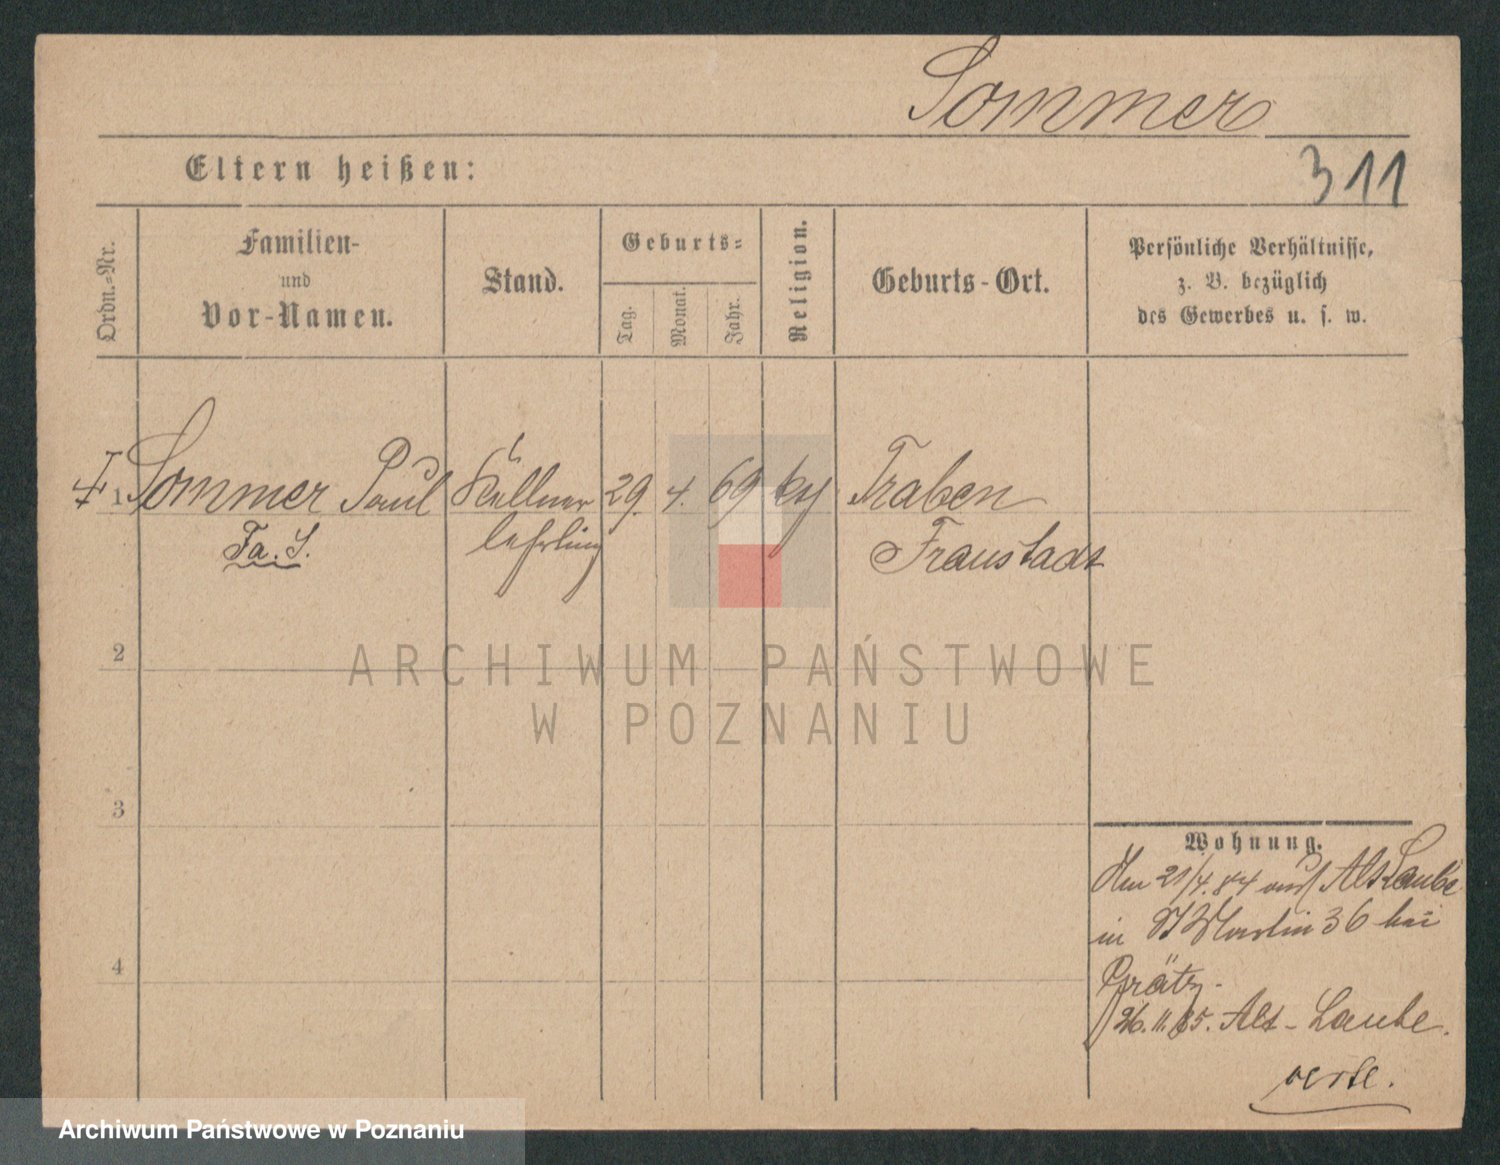 Sommer
Eltern heißen:
311
Ordn.-Nr.
Familien-
und
Vor-Namen.
Stand.
Geburts-
Tag.
Monat.
Jahr.
Religion.
Geburts-Ort.
Persönliche Verhältnisse,
z. B. bezüglich
des Gewerbes u. s. w.
1 Sommer Paul Kellner 29. 4. 69 Traben
lehrling Fraustadt
2
3
4
Wohnung.
21/4. 84 auf Alt Laube
in St Martin 36 bei
26. 11. 85. Alt-Laube.
ARCHIWUM PAŃSTWOWE
W POZNANIU
Archiwum Państwowe w Poznaniu